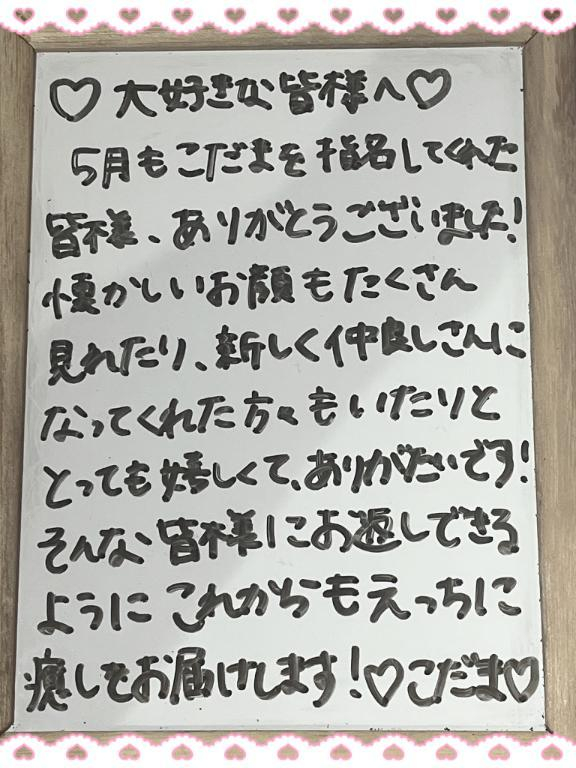 ♡大好きな皆様へ♡
5月もこだまを指名してくれた
皆様、ありがとうございました!
懐かしいお顔もたくさん
見れたり、新しく仲良しさんに
なってくれた方々もいたりと
とっても嬉しくて、ありがたいです!
そんな皆様にお返しできる
ようにこれからもえっちに
癒しをお届けします!♡こだま♡